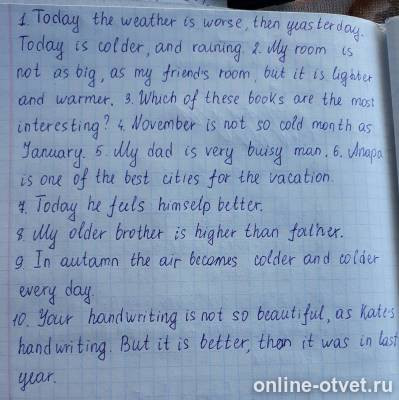 1. Today the weather is worse, then yeasterday.
Today is colder, and raining. 2. My room is
not as big, as my friend's room, but it is lighter
and warmer. 3. Which of these books are the most
interesting? 4. November is not so cold month as
January. 5. My dad is very buisy man. 6. Anapa
is one of the best cities for the vacation.
7. Today he feels himself better.
8. My older brother is higher than father.
9. In autamn the air becomes colder and colder
every day.
10. Your handwriting is not so beautiful, as Kate's
handwriting. But it is better, then it was in last
year.
online-otvet.ru